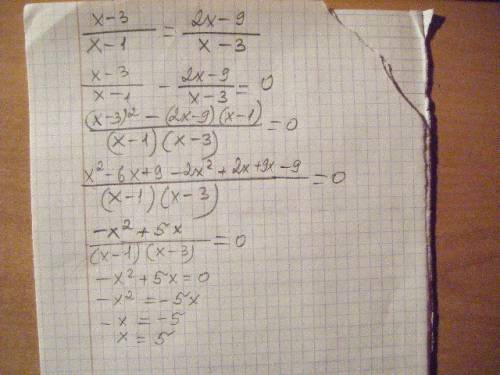 x-3/x-1 = 2x-9/x-3
x-3/x-1 - 2x-9/x-3 = 0
(x-3)² - (2x-9)(x-1)/(x-1)(x-3) = 0
x²-6x+9-2x²+2x+9x-9/(x-1)(x-3) = 0
-x²+5x/(x-1)(x-3) = 0
-x²+5x=0
-x²=-5x
-x=-5
x=5